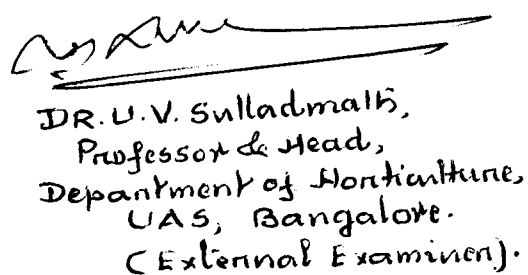 DR. U.V. Sulladmath,
Professor & Head,
Department of Horticulture,
UAS, Bangalore.
(External Examiner).